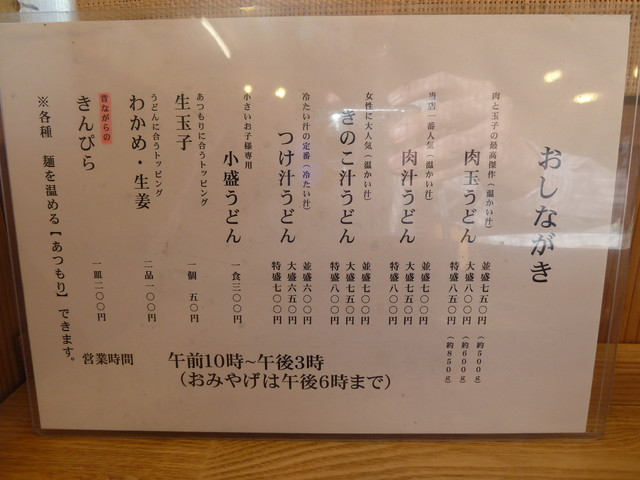 おしながき
肉と玉子の最高傑作（温かい汁）
肉玉うどん
並盛七五〇円（約500g）
大盛八〇〇円（約600g）
特盛八五〇円（約850g）
当店一番人気（温かい汁）
肉汁うどん
並盛七〇〇円
大盛七五〇円
特盛八〇〇円
女性に大人気（温かい汁）
きのこ汁うどん
並盛七〇〇円
大盛七五〇円
特盛八〇〇円
冷たい汁の定番（冷たい汁）
つけ汁うどん
並盛六〇〇円
大盛六五〇円
特盛七〇〇円
小さいお子様専用
小盛うどん
一食三〇〇円
あつもりに合うトッピング
生玉子
一個 五〇円
うどんに合うトッピング
わかめ・生姜
二品一〇〇円
昔ながらの
きんぴら
一皿二〇〇円
※各種 麺を温める【あつもり】できます。
営業時間 午前10時~午後3時
（おみやげは午後6時まで）